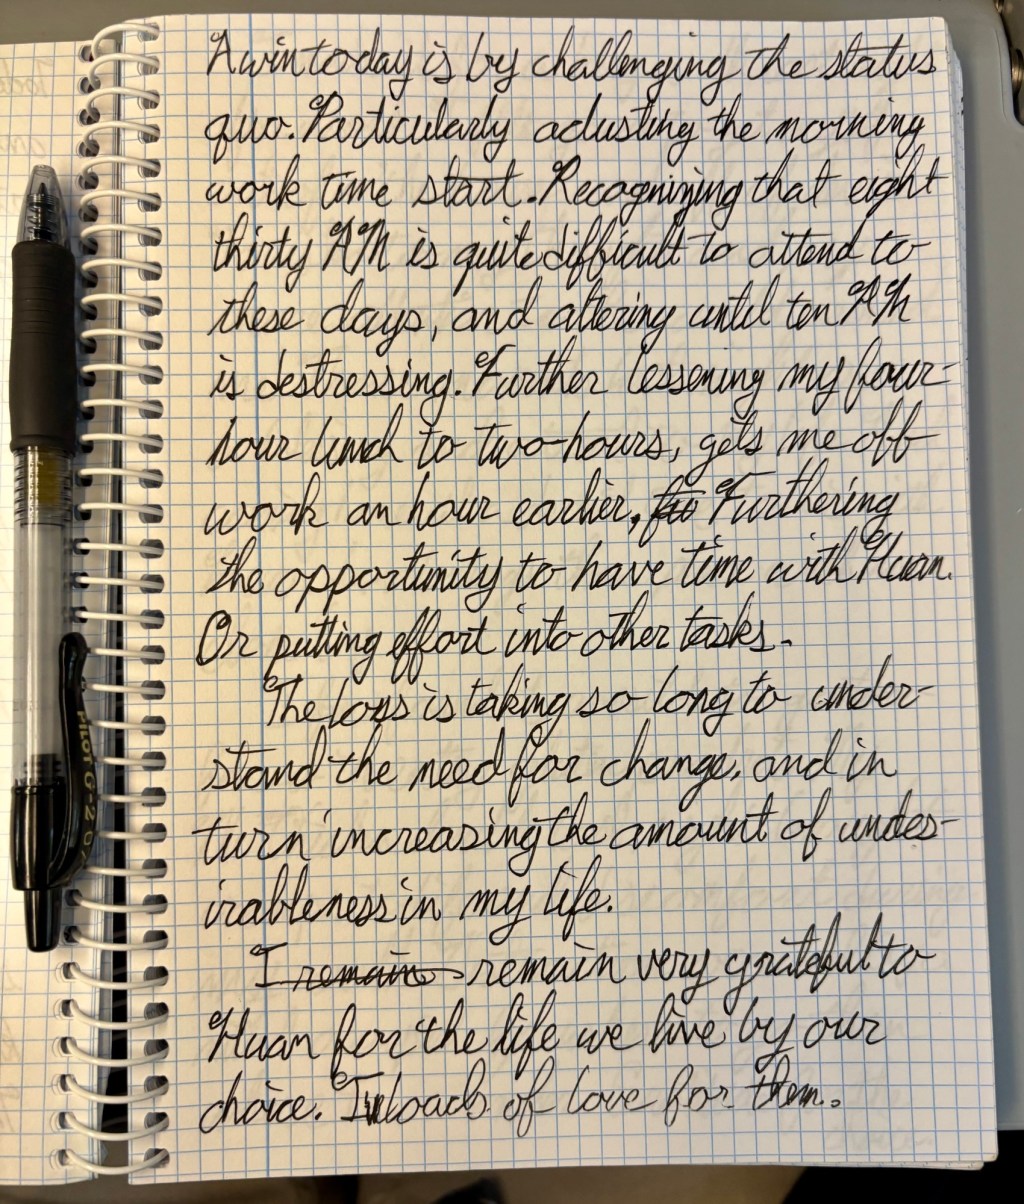 A win today is by challenging the status
quo. Particularly adusting the morning
work time start. Recognizing that eight
thirty AM is quite difficult to attend to
these days, and altering until ten AM
is destressing. Further lessening my four-
hour lunch to two-hours, gets me off
work an hour earlier. Furthering
the opportunity to have time with Huan.
Or putting effort into other tasks.
The loss is taking so long to under-
stand the need for change, and in
turn increasing the amount of undes-
irableness in my life.
I remain remain very grateful to
Huan for the life we live by our
choice. loads of love for them.
PILOT G-2 07